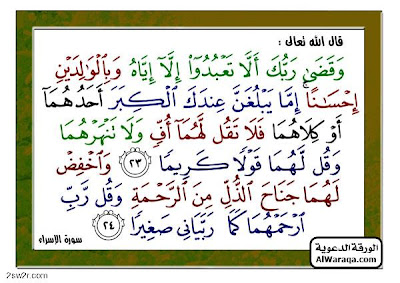 قال الله تعالى :
وَقَضَىٰ رَبُّكَ أَلَّا تَعْبُدُوٓا۟ إِلَّآ إِيَّاهُ وَبِٱلْوَٰلِدَيْنِ
إِحْسَٰنًا ۚ إِمَّا يَبْلُغَنَّ عِندَكَ ٱلْكِبَرَ أَحَدُهُمَآ
أَوْ كِلَاهُمَا فَلَا تَقُل لَّهُمَآ أُفٍّ وَلَا نَنْهَرْهُمَا
وَقُل لَّهُمَا قَوْلًا كَرِيمًا ٢٣ وَٱخْفِضْ
لَهُمَا جَنَاحَ ٱلذُّلِّ مِنَ ٱلرَّحْمَةِ وَقُل رَّبِّ
ٱرْحَمْهُمَا كَمَا رَبَّيَانِى صَغِيرًا ٢٤
سورة الإسراء
الورقة الدعوية
AlWaraqa.com
2sw2r.com